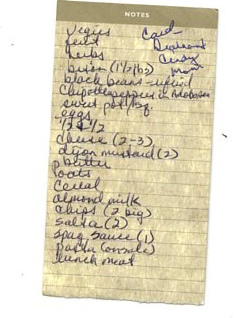 NOTES
Vegies
fruit
herbs
bacon (1 1/2 lbs)
black beans - refried
Chipotle peppers in Adobo
sweet pot/
eggs
1/2 & 1/2
cheese (2-3)
dijon mustard (2)
p butter
oats
Cereal
almond milk
chips (2 big)
salsa (2)
spag sauce (1)
pasta
lunch meat
Card
Mom